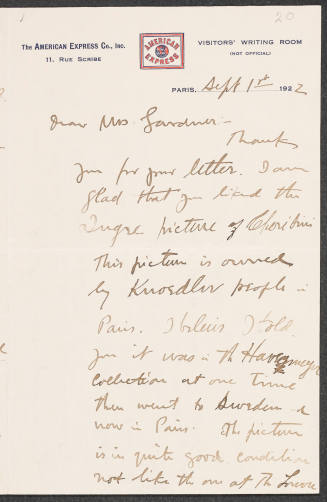 20
The AMERICAN EXPRESS Co., Inc.
11, RUE SCRIBE
AMERICAN EXPRESS
VISITORS' WRITING ROOM
(NOT OFFICIAL)
PARIS, Sept 1st 1922
Dear Mrs. Gardner:-
Thank
you for your letter. I am
glad that you liked the
Ingre picture of Cheribini
This picture is owned
by Knoedler people in
Paris. I believe I told
you it was in the Havemeyer
collection at one time
then went to Sweden &
now in Paris. The picture
is in quite good condition
not like the one at the Louvre